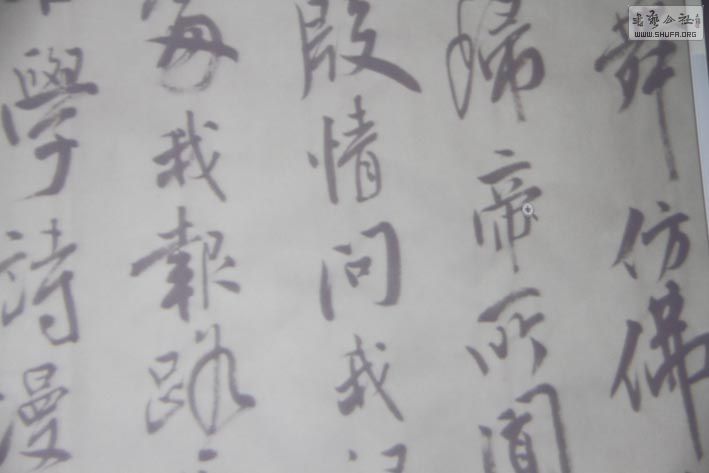 舞仿佛
歸帝所聞
殷情問我
我報路
學詩漫
書藝公社
WWW.SHUFA.ORG